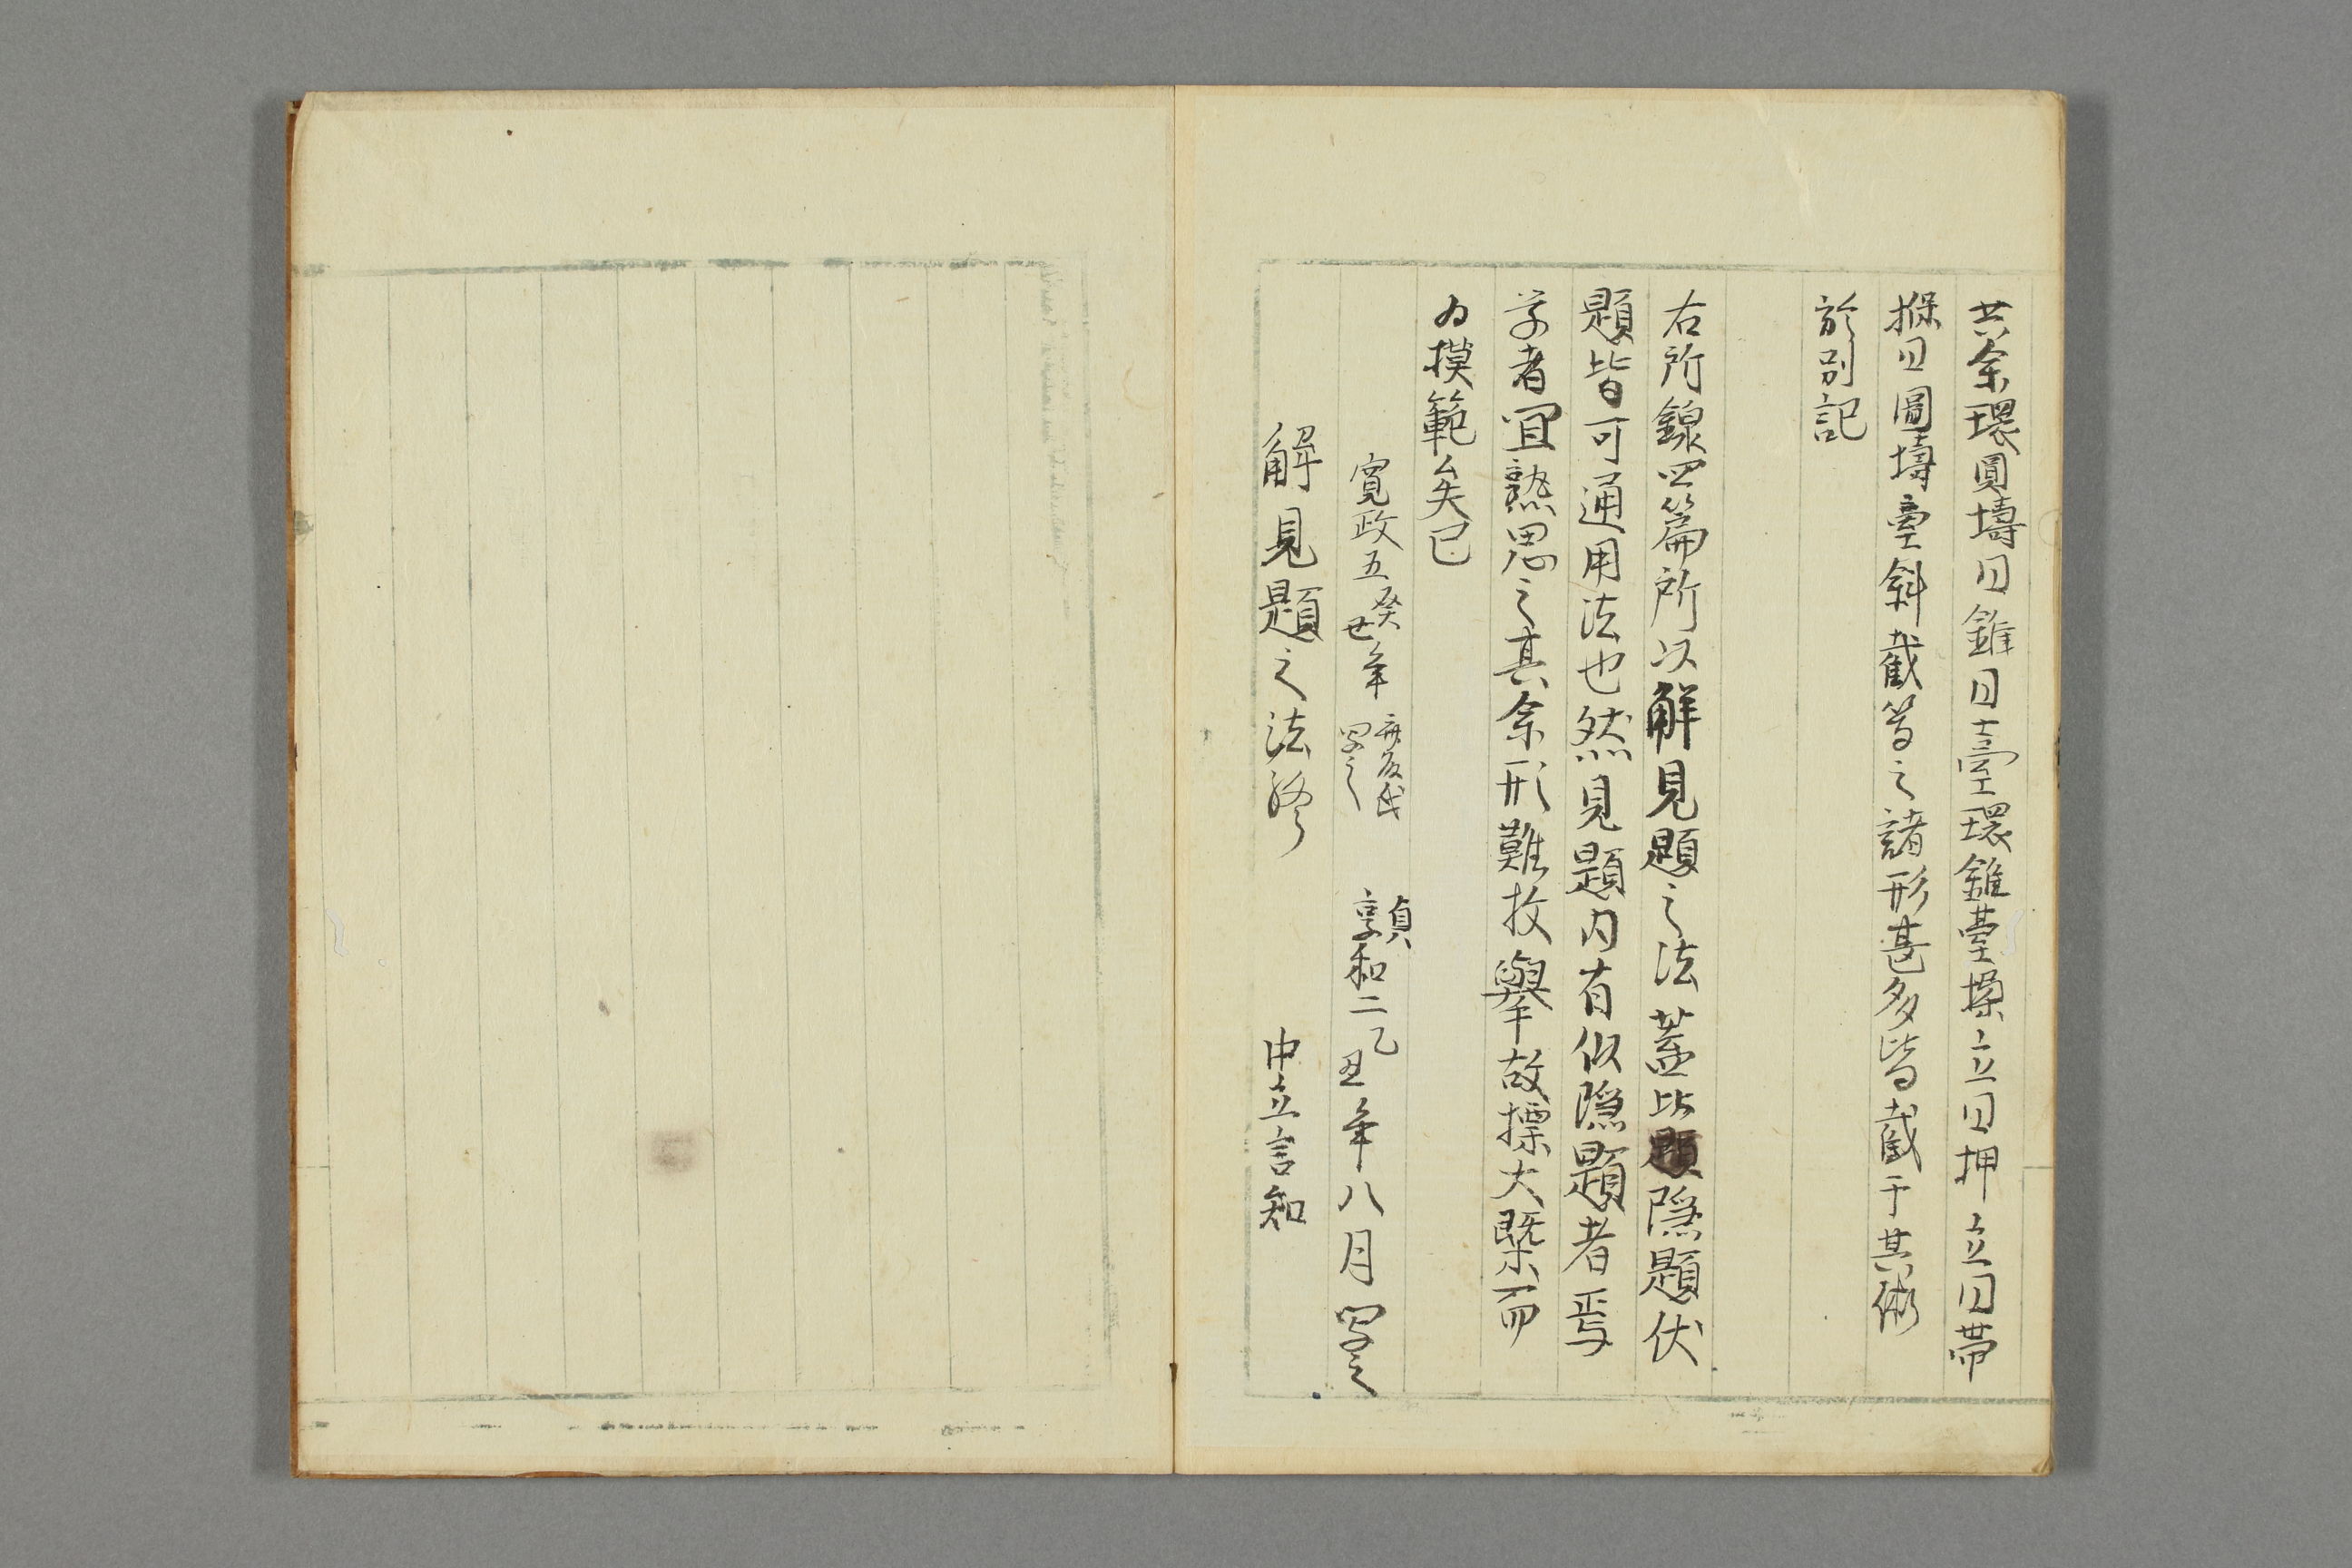 其余環圓壔曰錐曰臺環錐臺操立曰押立曰帶
操曰圓壔臺斜截等之諸形甚多皆截于其術
於別記
右所録四篇所以解見題之法蓋此題隠題伏
題皆可通用法也然見題内有似隠題者焉
学者冝熟思之其余形難枚擧故摽大槩而
為摸範矣已
寛政五癸丑年 写之 貞享和二乙丑年八月写之
解見題之法終 中立言知